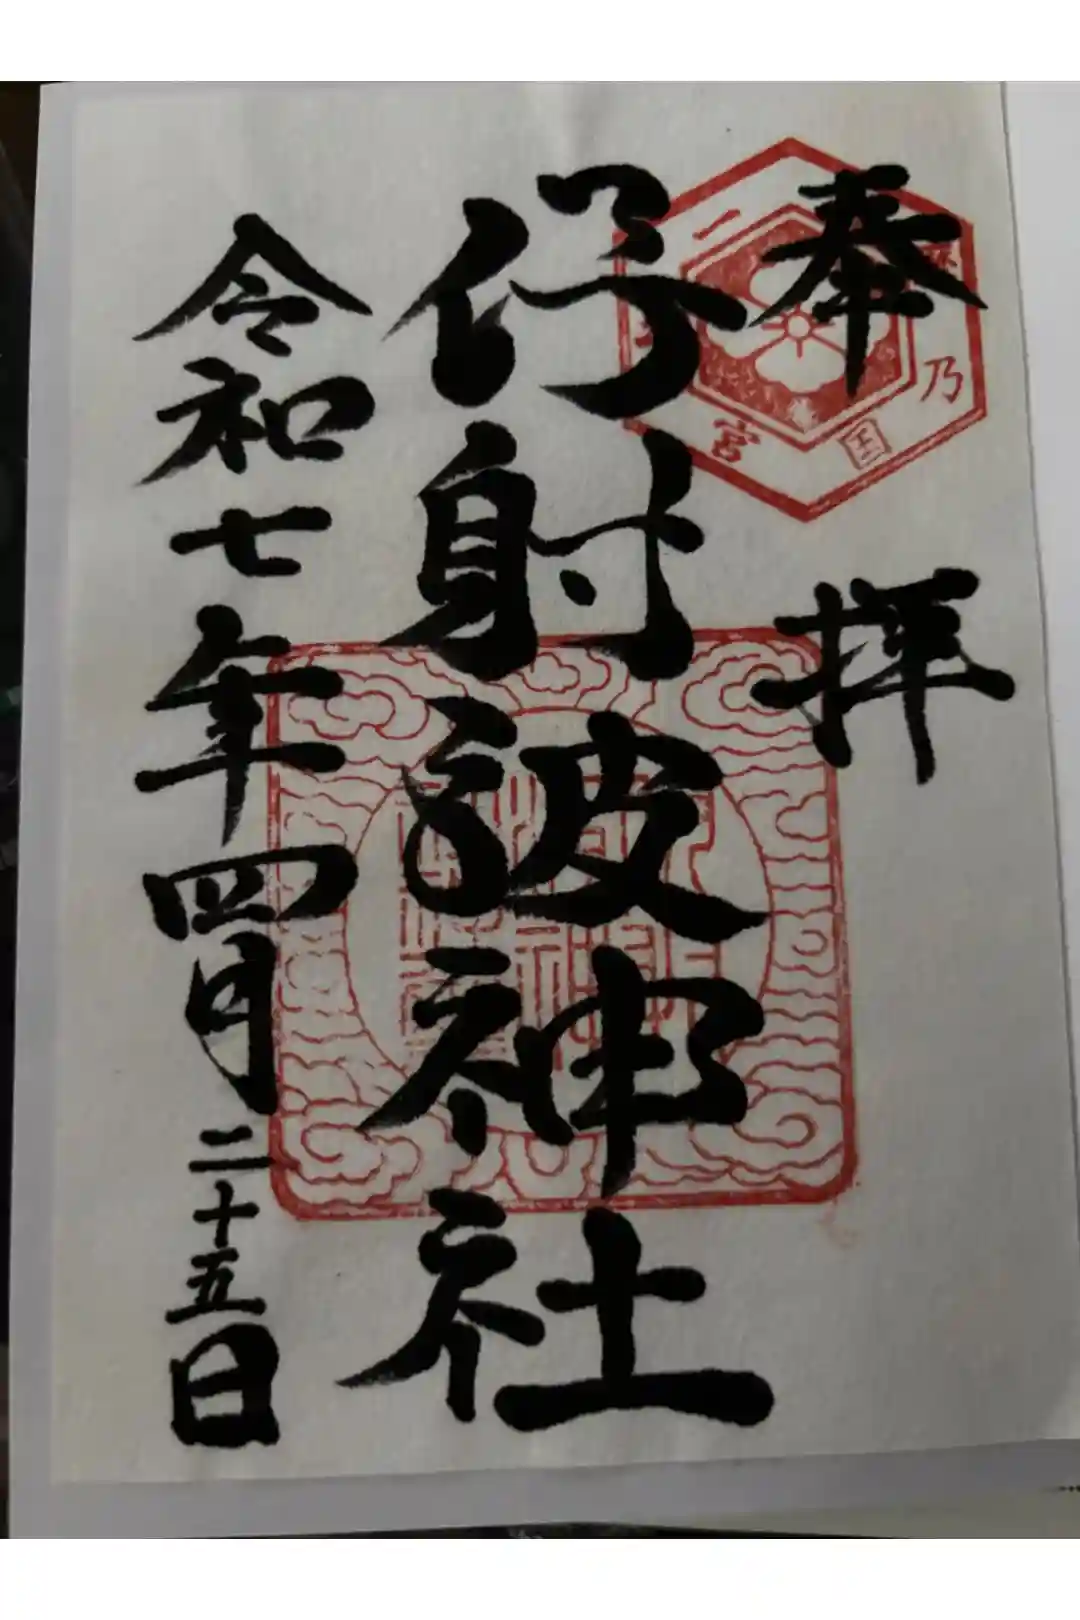 奉拝
伊射波神社
令和七年四月二十五日
乃
国
宮